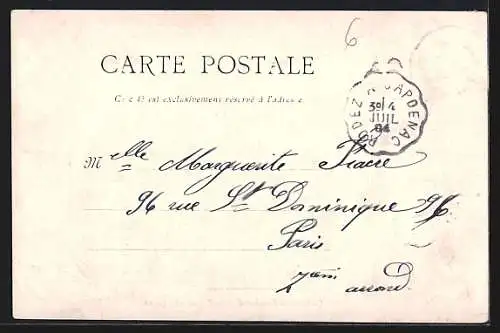 6
CARTE POSTALE
Ce côté est exclusivement réservé à l'adresse
RODEZ A CAPDENAC
4
JUIL
04
Melle Marguerite
96 rue St Dominique 96
Paris
7em arrond.